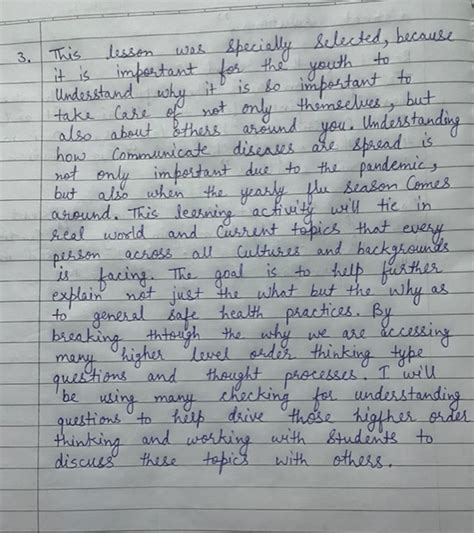 3. This lesson was specially selected, because
it is important for the youth to
Understand why it is so important to
take care of not only themselves, but
also about others around you. Understanding
how Communicate diseases are spread is
not only important due to the pandemic,
but also when the yearly flu season Comes
around. This learning activity will tie in
real world and Current topics that every
person across all Cultures and backgrounds
is facing. The goal is to help further
explain not just the what but the why as
to general safe health practices. By
breaking thtough the why we are accessing
many higher level order thinking type
questions and thought processes. I will
be using many checking for understanding
questions to help drive those higfher order
thinking and working with students to
discuss these topics with others.